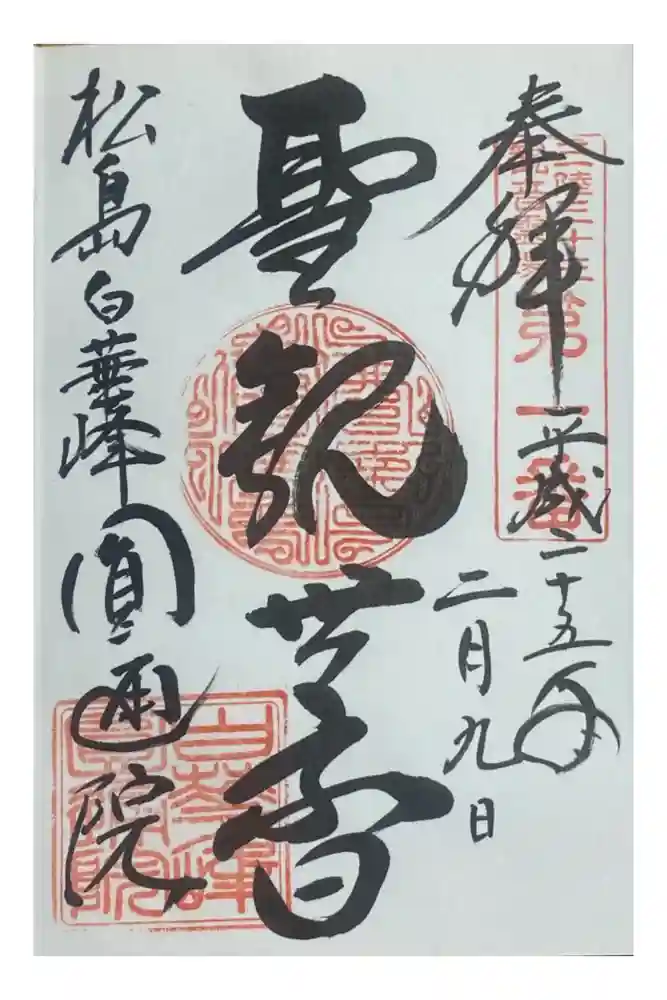 奉拝
平成二十五年
二月九日
三陸三十三
観音霊場
第一番
聖観世音
松島白華峰圓通院
白華峰
圓通院